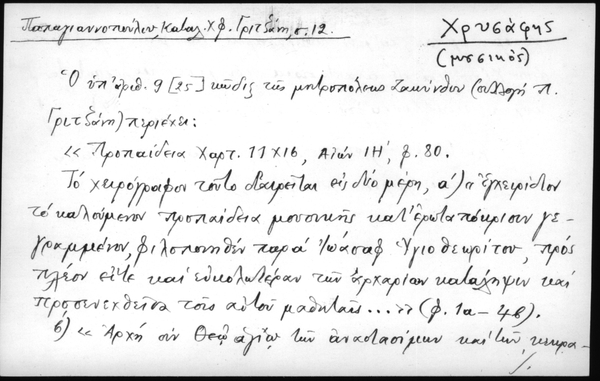 Παπαγιαννοπούλου, Καταλ. Χφ. Γριτζάνη, σ. 12.
Χρυσάφης
(μουσικός)
Ὁ ὑπ' ἀριθ. 9 [25] κῶδιξ τῆς μητροπόλεως Ζακύνθου (συλλογή Π.
Γριτζάνη) περιέχει:
« Προπαίδεια Χαρτ. 11 Χ 16, Αἰών ΙΗ΄, φ. 80.
Τό χειρόγραφον τοῦτο διαιρεῖται εἰς δύο μέρη, α΄) « Ἐγχειρίδιον
τό καλούμενον προπαίδεια μουσικῆς κατ' ἐρωταπόκρισιν γε-
γραμμένον, φιλοπονηθέν παρά Ἰωάσαφ Ἁγιοθεωρίτου, πρός
πλέον εἴτε καί εὐκολωτέραν τῶν ἀρχαρίων κατάληψιν καί
προσενεχθεῖσα τοῖς αὐτοῦ μαθηταῖς ... » (φ. 1α - 4β).
β) « Ἀρχή σύν Θεῷ ἁγίῳ τῶν ἀναστασίμων καί τῶν κεκρα-